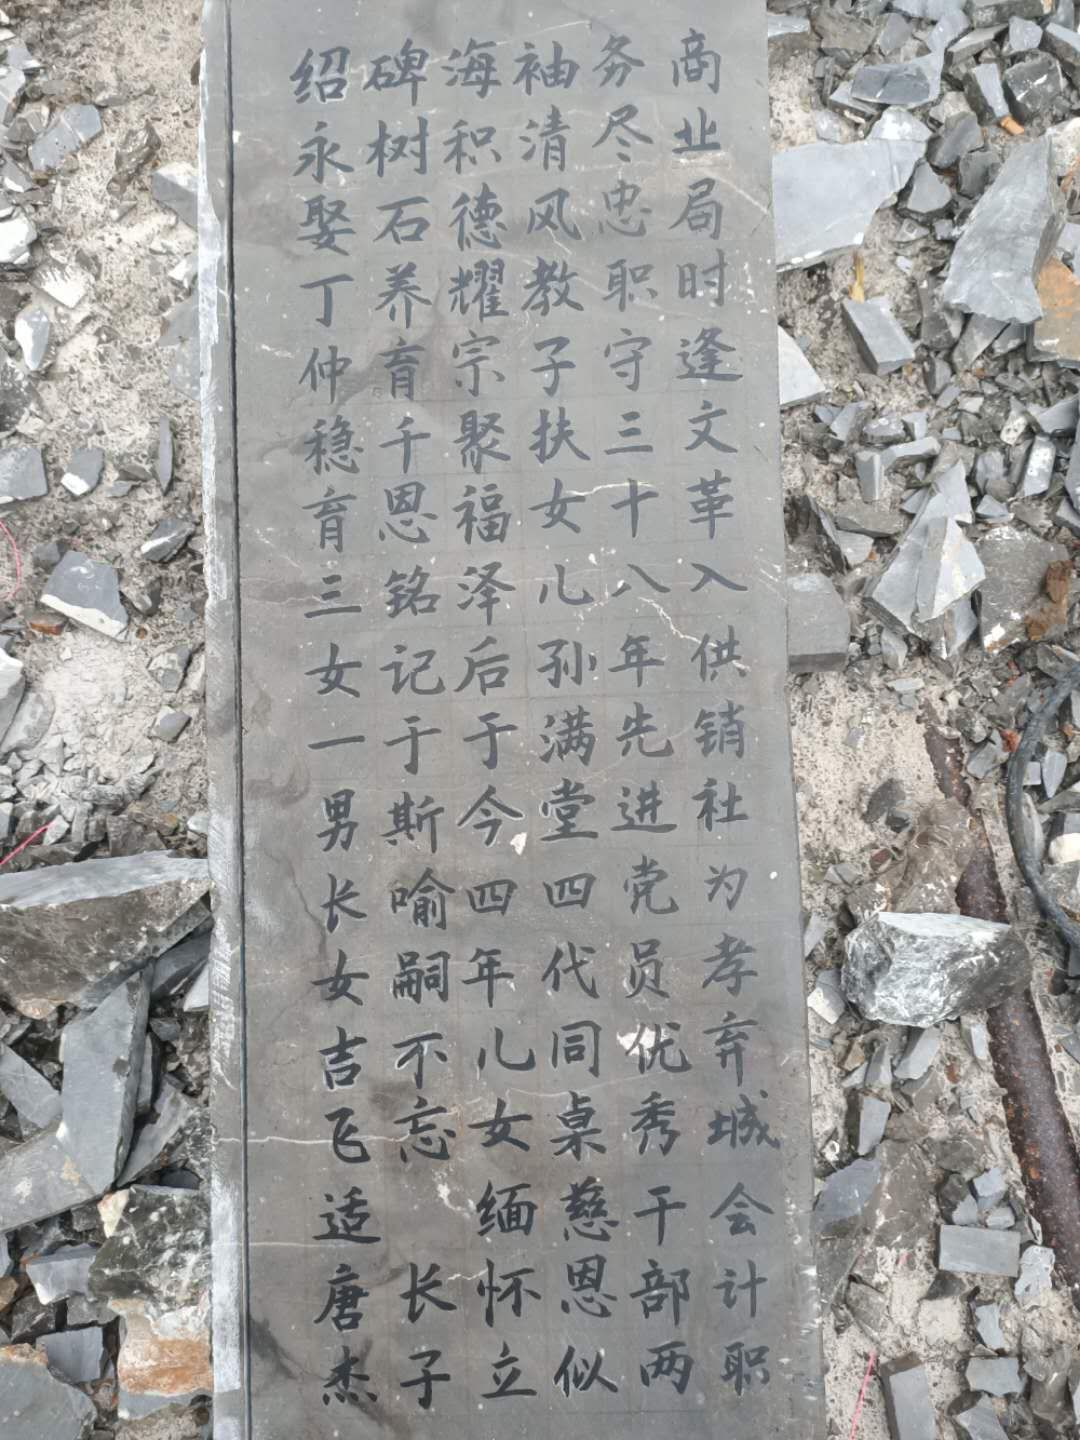 商业局时逢文革入供销社为孝弃城会计职
务尽忠职守三十八年先进党员优秀干部两
袖清风教子扶女儿孙满堂四代同桌慈恩似
海积德耀宗聚福泽后于今四年儿女缅怀立
碑树石养育千恩铭记于斯喻嗣不忘 长子
绍永娶丁仲稳育三女一男长女吉飞适唐杰